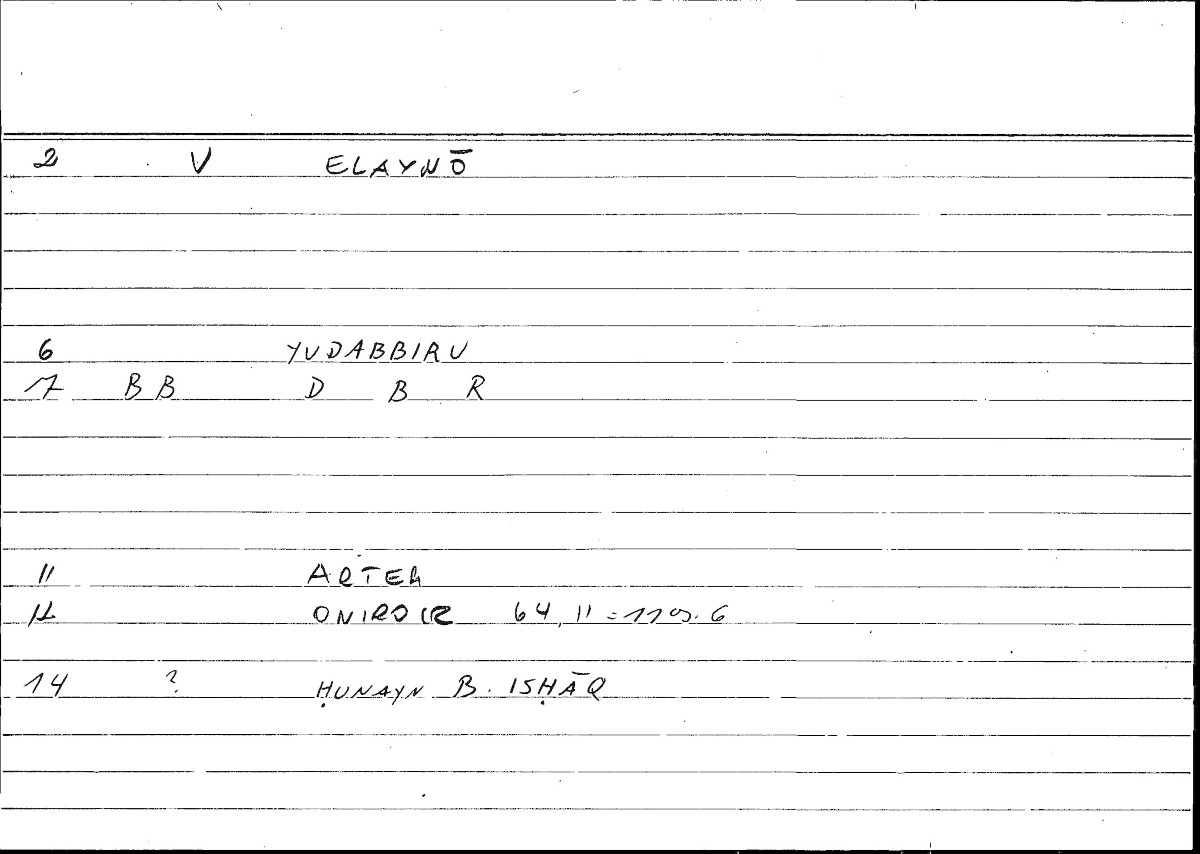 2 V ELAYNŌ
6 YUDABBIRU
17 BB D B R
11 ARTEM
12 ONIROCR 64, 11 = 119. 6
14 ? ḤUNAYN B. ISḤĀQ